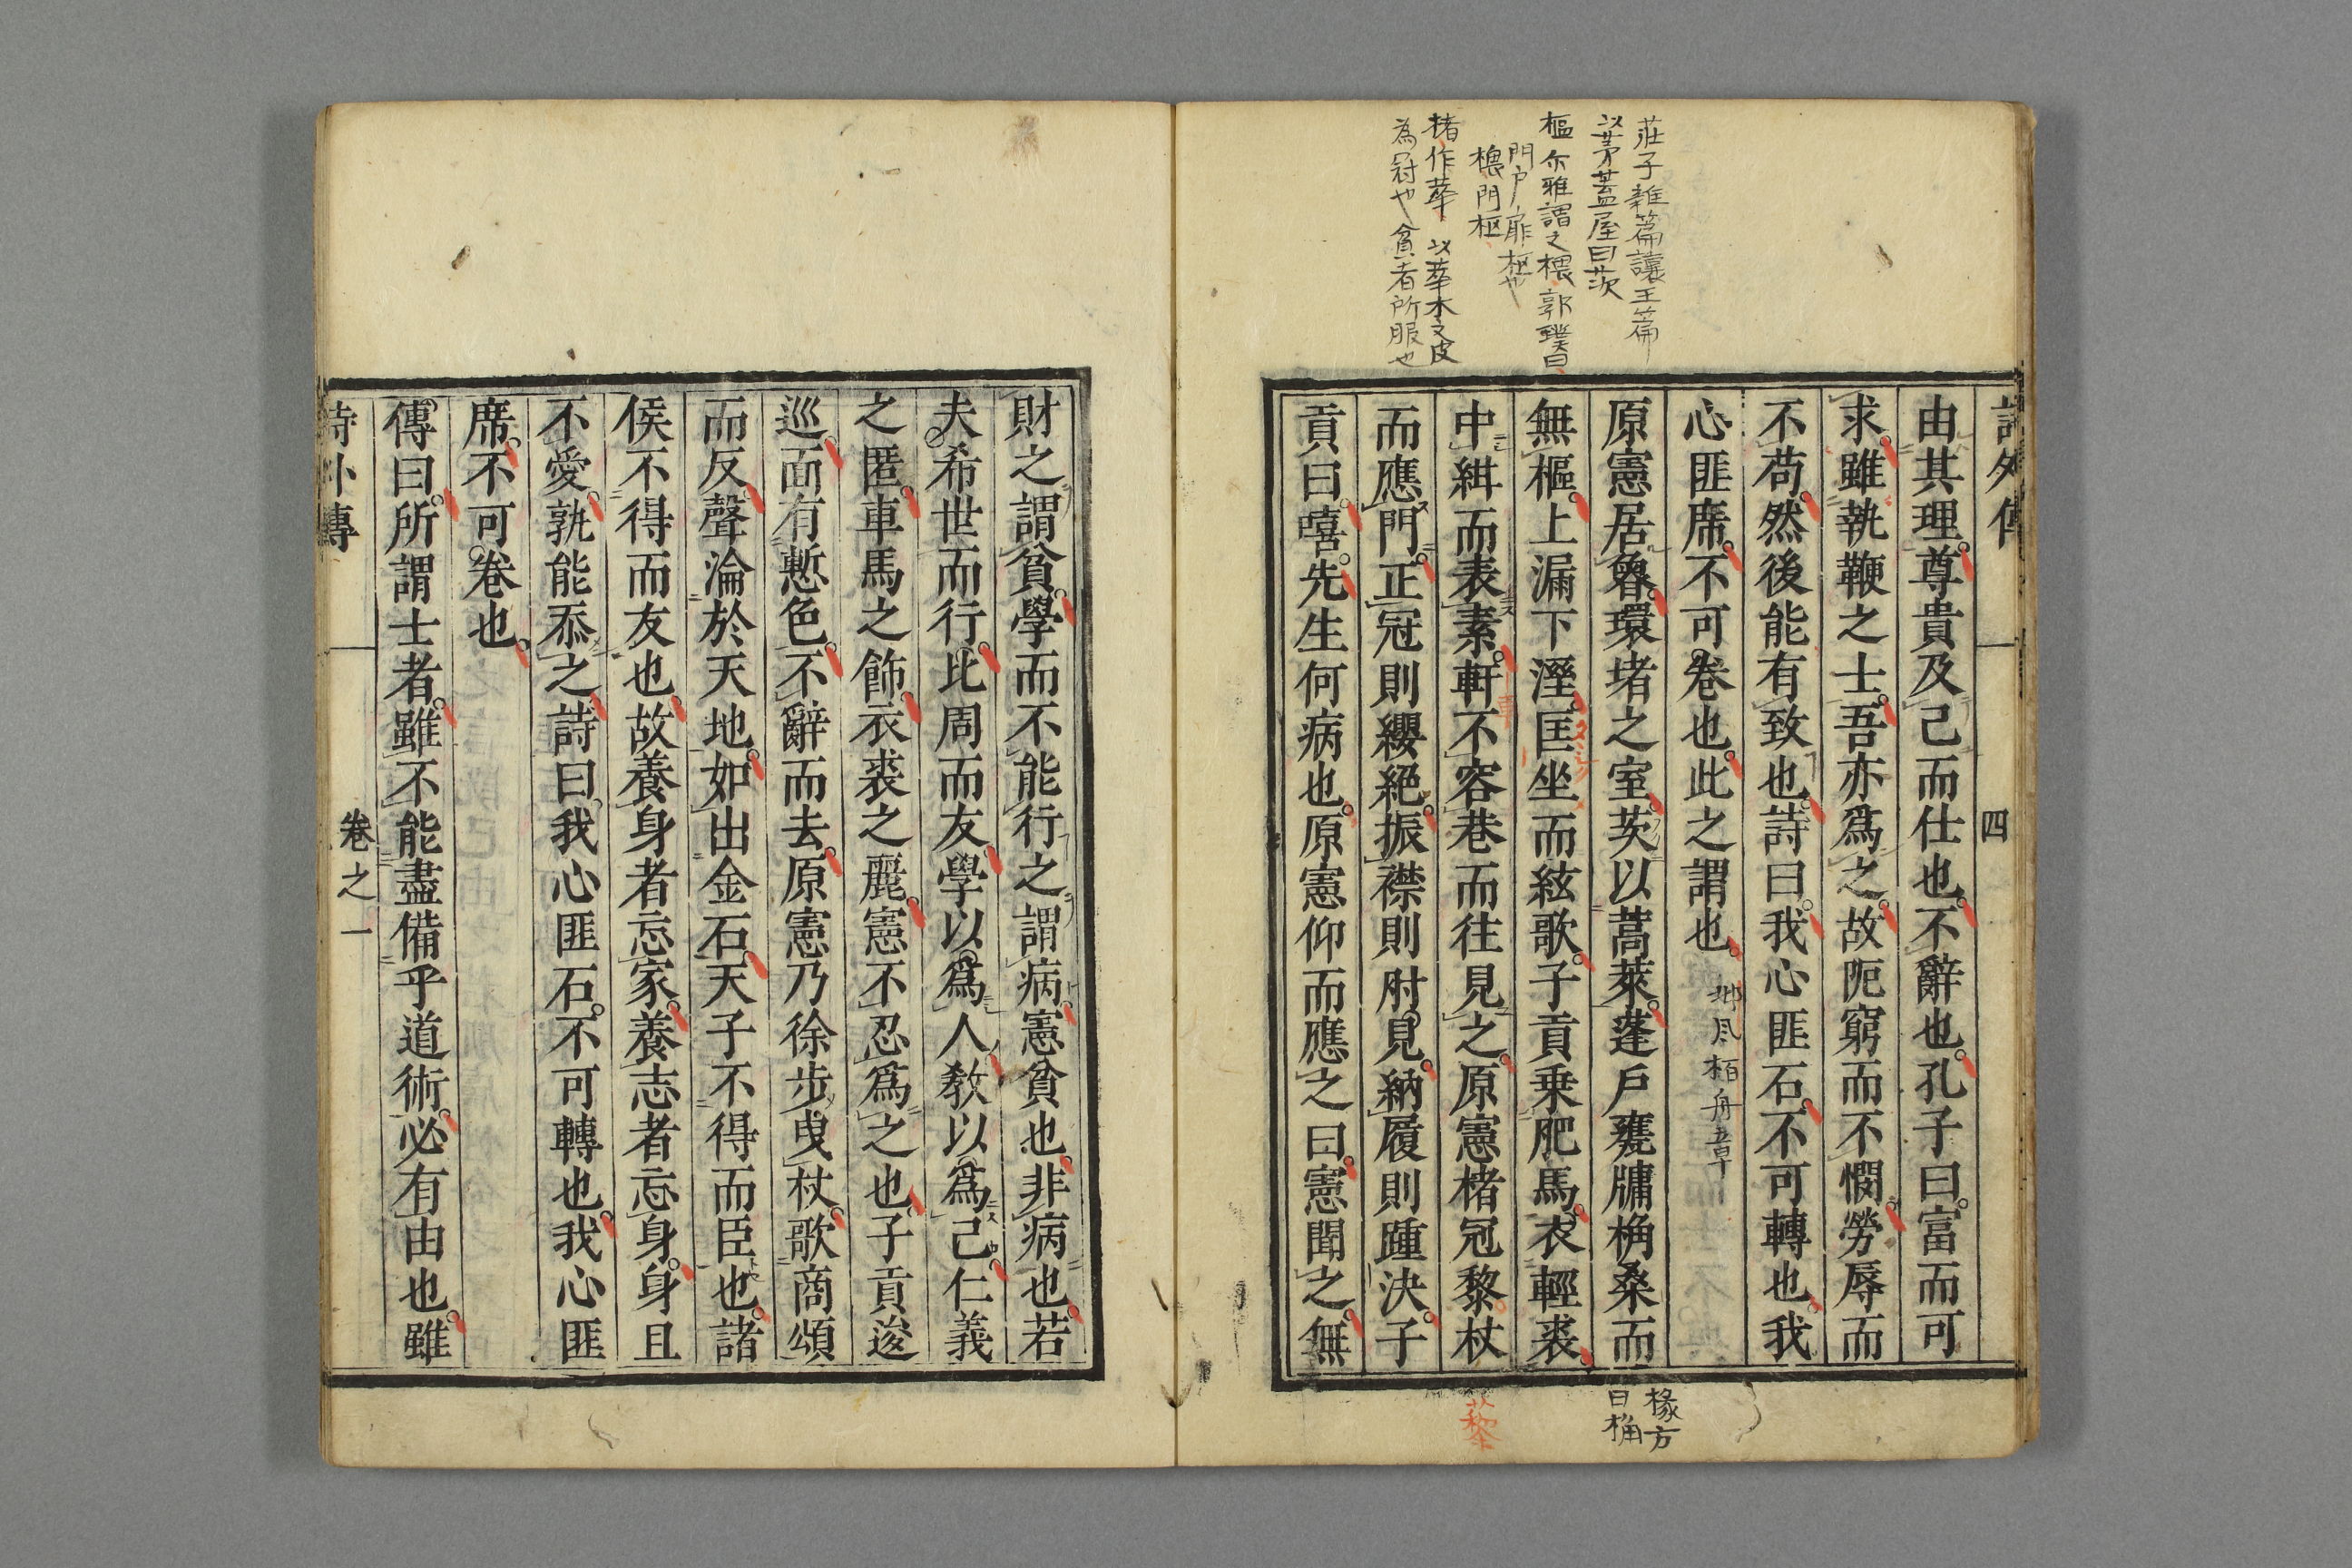 莊子雜篇讓王篇
以茅蓋屋曰茨
樞 尓雅謂之椳 郭璞曰
門戸扉樞也
椳門樞
楮作華 以華木之皮
為冠也貧者所服也
詩外傳 四
由其理尊貴及己而仕也不辭也孔子曰富而可
求雖執鞭之士吾亦爲之故阨窮而不憫勞辱而
不苟然後能有致也詩曰我心匪石不可轉也我
心匪席不可卷也此之謂也
邶風栢舟五章
原憲居魯環堵之室茨以蒿萊蓬戸甕牖桷桑而
無樞上漏下溼匡坐而絃歌子貢乗肥馬衣輕裘
中紺而表素軒不容巷而往見之原憲楮冠黎杖
而應門正冠則纓絕振襟則肘見納履則踵決子
貢曰嘻先生何病也原憲仰而應之曰憲聞之無
椽方
曰桷
藜
財之謂貧學而不能行之謂病憲貧也非病也若
夫希世而行比周而友學以爲人教以爲己仁義
之匿車馬之飾衣裘之麗憲不忍爲之也子貢逡
巡面有慙色不辭而去原憲乃徐步曳杖歌商頌
而反聲淪於天地如出金石天子不得而臣也諸
侯不得而友也故養身者忘家養志者忘身身且
不愛孰能忝之詩曰我心匪石不可轉也我心匪
席不可卷也
傳曰所謂士者雖不能盡備乎道術必有由也雖
詩外傳 卷之一